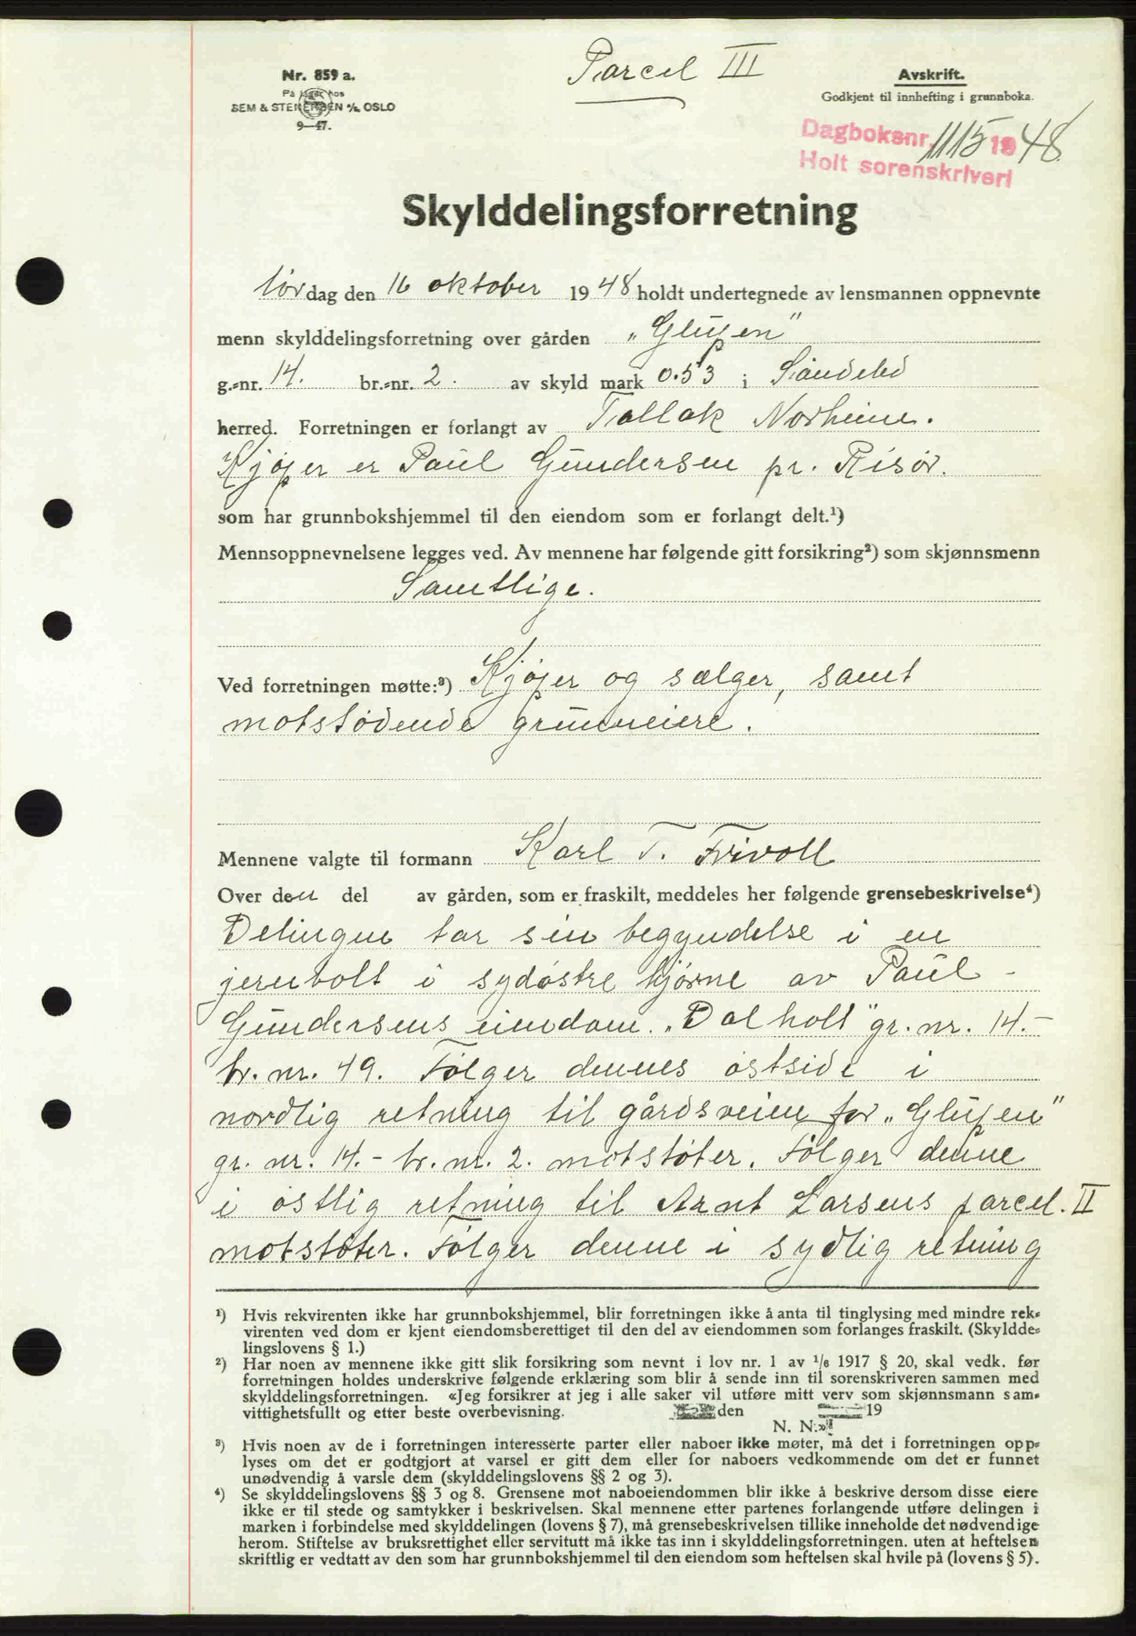 Parcel III
Nr. 859 a.
På lager hos
SEM & STENERSEN A/S OSLO
9—47.
Avskrift.
Godkjent til innhefting i grunnboka.
Dagboksnr. 1115 1948
Holt sorenskriveri
Skylddelingsforretning
lørdag den 16 oktober 1948 holdt undertegnede av lensmannen oppnevnte
menn skylddelingsforretning over gården „Glupen"
g.-nr. 14. br.-nr. 2. av skyld mark 0.53 i Søndeled
herred. Forretningen er forlangt av Tallak Norheim.
Kjøper er Paul Gundersen pr. Risør.
som har grunnbokshjemmel til den eiendom som er forlangt delt.¹)
Mennsoppnevnelsene legges ved. Av mennene har følgende gitt forsikring²) som skjønnsmenn
Samtlige.
Ved forretningen møtte:³) Kjøper og sælger, samt
motstødende grunneiere.
Mennene valgte til formann Karl T. Frivoll
Over den del av gården, som er fraskilt, meddeles her følgende grensebeskrivelse⁴)
Delingen tar sin begyndelse i en
jernbolt i sydøstre hjørne av Paul
Gundersens eiendom „Dalholt" gr. nr. 14.-
br. nr. 49. Følger dennes østside i
nordlig retning til gårdsveien for „Glupen"
gr. nr. 14.- br. nr. 2. motstøter. Følger denne
i østlig retning til Arnt Larsens parcel. II
motstøter. Følger denne i sydlig retning
¹) Hvis rekvirenten ikke har grunnbokshjemmel, blir forretningen ikke å anta til tinglysing med mindre rek-
virenten ved dom er kjent eiendomsberettiget til den del av eiendommen som forlanges fraskilt. (Skyldde-
lingslovens § 1.)
²) Har noen av mennene ikke gitt slik forsikring som nevnt i lov nr. 1 av 1/6 1917 § 20, skal vedk. før
forretningen holdes underskrive følgende erklæring som blir å sende inn til sorenskriveren sammen med
skylddelingsforretningen. «Jeg forsikrer at jeg i alle saker vil utføre mitt verv som skjønnsmann sam-
vittighetsfullt og etter beste overbevisning. den 19
N. N.»
³) Hvis noen av de i forretningen interesserte parter eller naboer ikke møter, må det i forretningen opp-
lyses om det er godtgjort at varsel er gitt dem eller for naboers vedkommende om det er funnet
unødvendig å varsle dem (skylddelingslovens §§ 2 og 3).
⁴) Se skylddelingslovens §§ 3 og 8. Grensene mot naboeiendommen blir ikke å beskrive dersom disse eiere
ikke er til stede og samtykker i beskrivelsen. Skal mennene etter partenes forlangende utføre delingen i
marken i forbindelse med skylddelingen (lovens § 7), må grensebeskrivelsen tillike inneholde det nødvendige
herom. Stiftelse av bruksrettighet eller servitutt må ikke tas inn i skylddelingsforretningen. uten at heftelsen
skriftlig er vedtatt av den som har grunnbokshjemmel til den eiendom som heftelsen skal hvile på (lovens § 5).